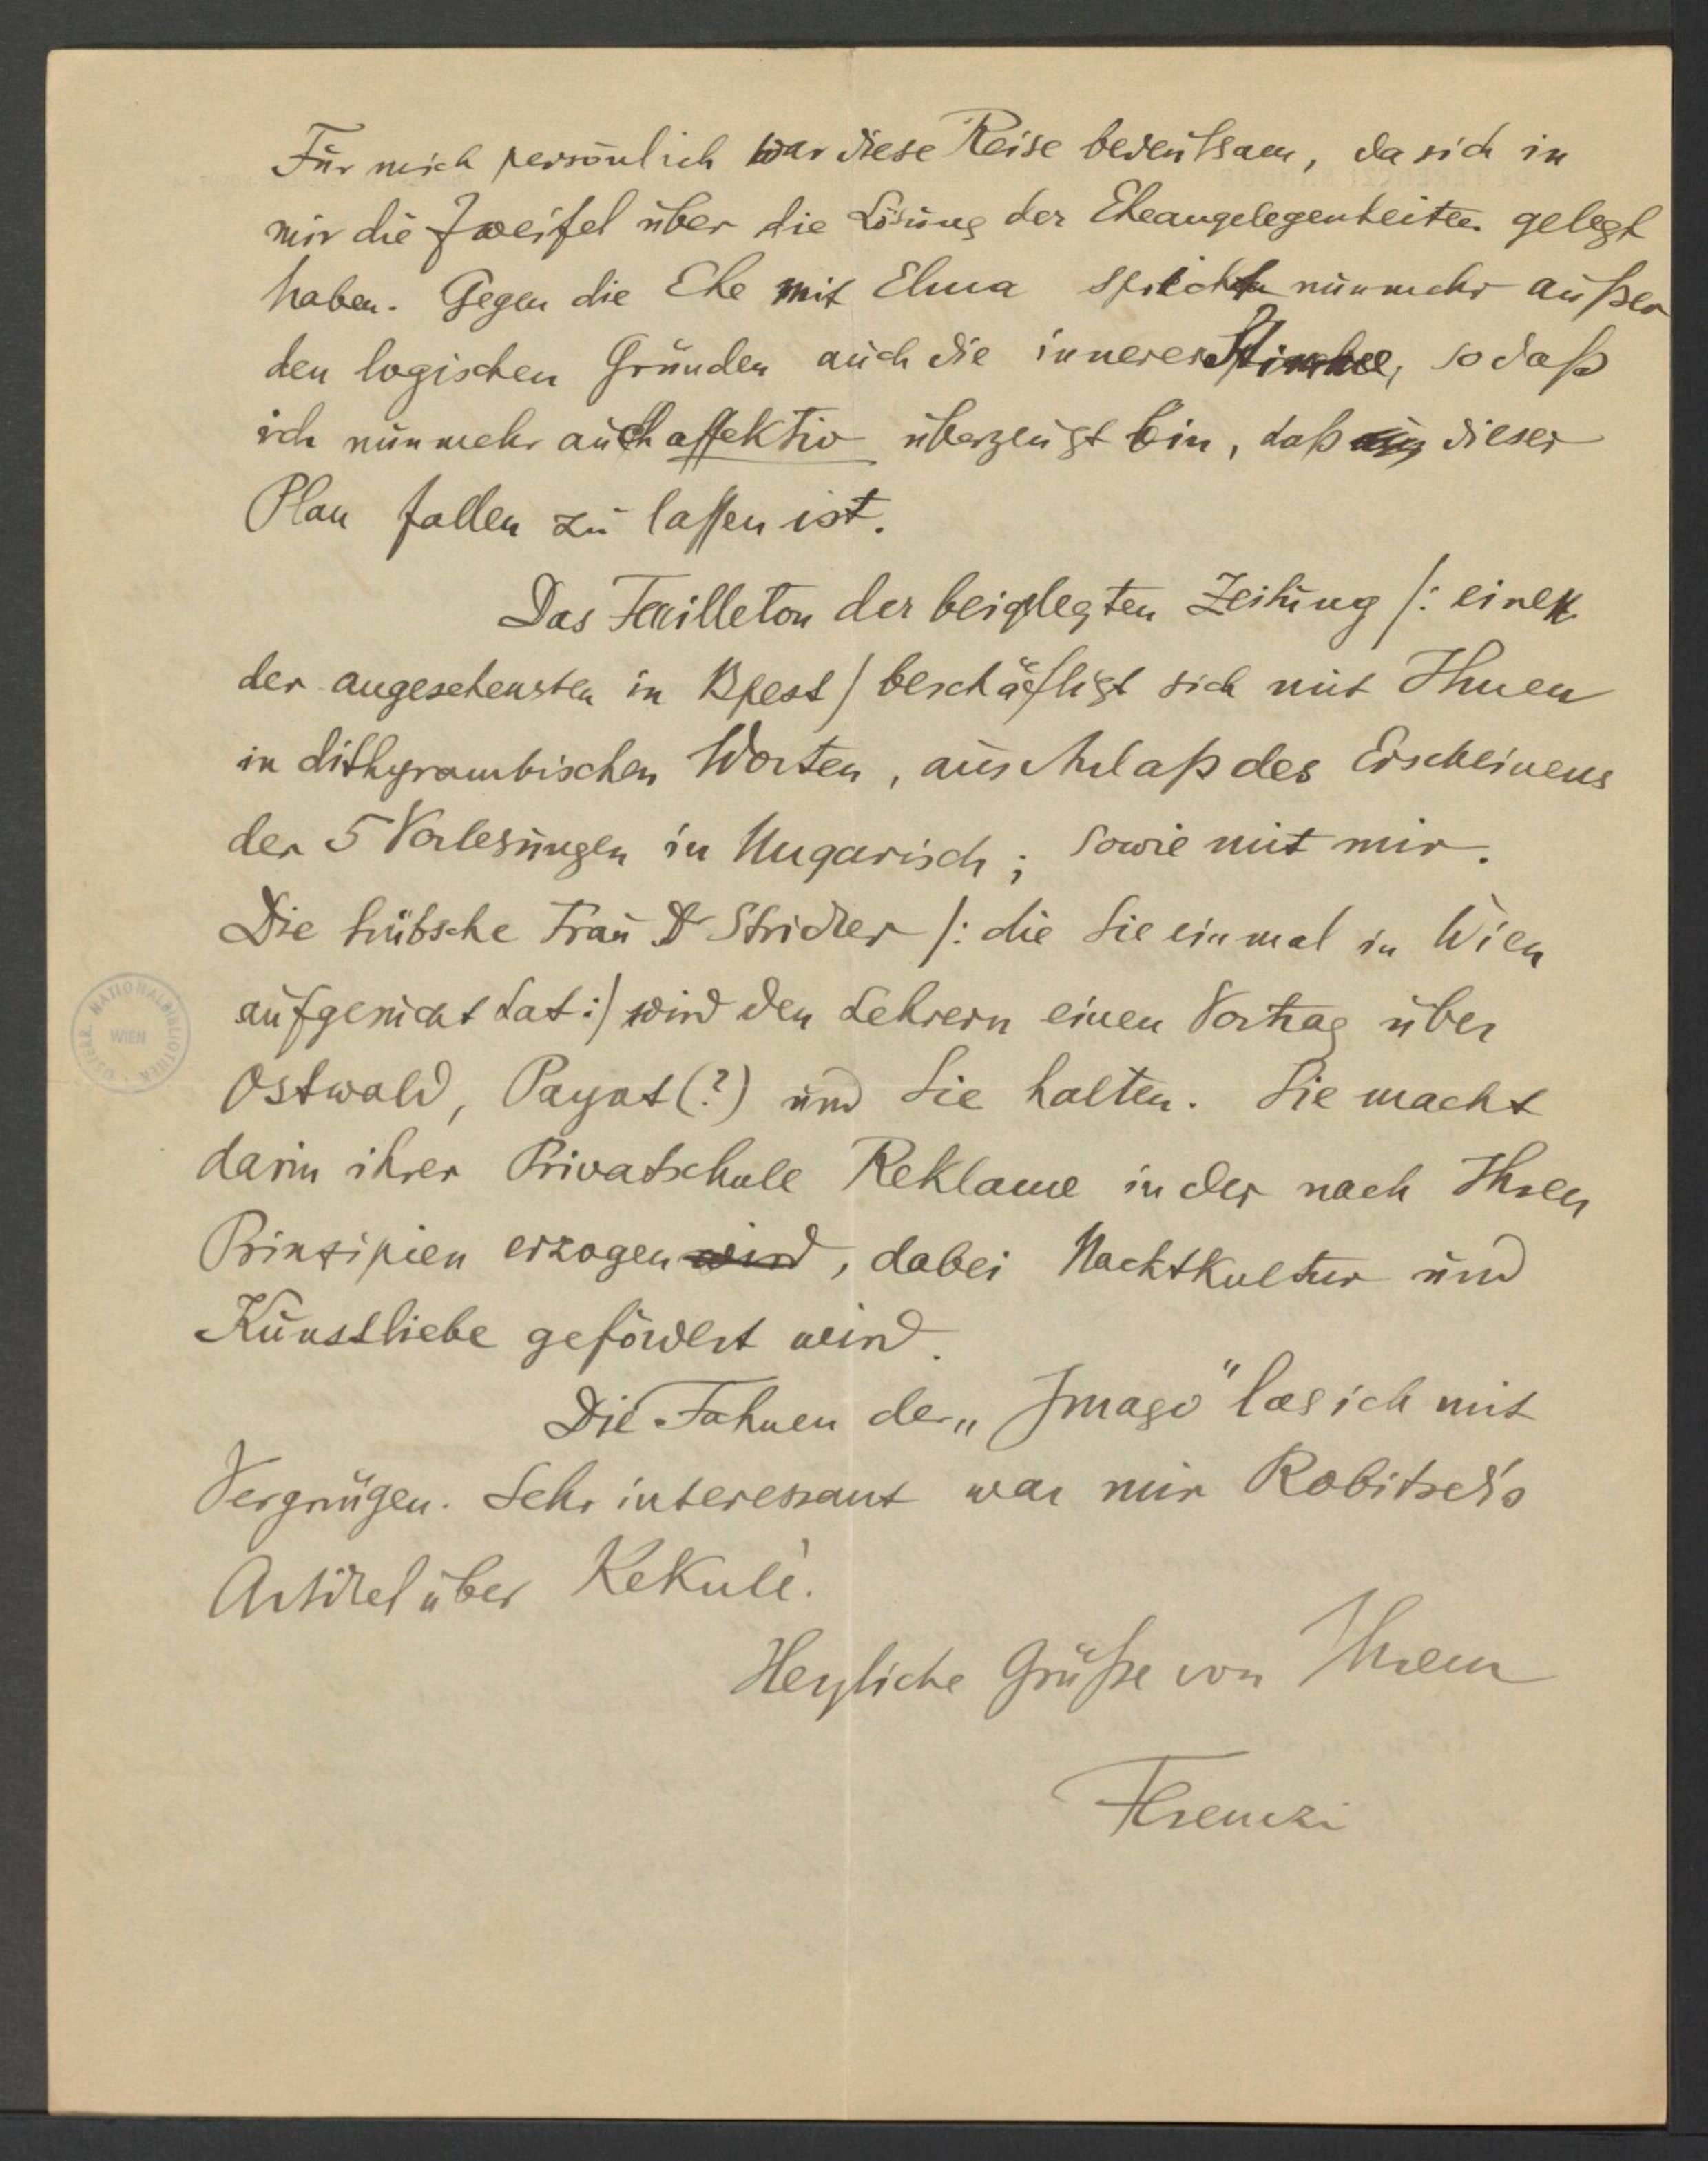 Für mich persönlich war diese Reise bedeutsam, da sich in
mir die Zweifel über die Lösung der Eheangelegenheiten gelegt
haben. Gegen die Ehe mit Elma spricht nunmehr außer
den logischen Gründen auch die innere Stimme, so daß
ich nunmehr auch affektiv überzeugt bin, daß dieser
Plan fallen zu lassen ist.
Das Feuilleton der beigelegten Zeitung /: einer
der angesehensten in Bpest / beschäftigt sich mit Ihnen
in dithyrambischen Worten, aus Anlaß des Erscheinens
der 5 Vorlesungen in Ungarisch; sowie mit mir.
Die hübsche Frau Dr Stricker /: die Sie einmal in Wien
aufgesucht hat :/ wird den Lehrern einen Vortrag über
Ostwald, Payot (?) und Sie halten. Sie macht
darin ihrer Privatschule Reklame in der nach Ihren
Prinzipien erzogen wird, dabei Nacktkultur und
Kunstliebe gefördert wird.
Die Fahnen der „Imago" las ich mit
Vergnügen. Sehr interessant war mir Robitsek's
Artikel über Kekulé.
Herzliche Grüße von Ihrem
Ferenczi
ÖSTERR. NATIONALBIBLIOTHEK
WIEN